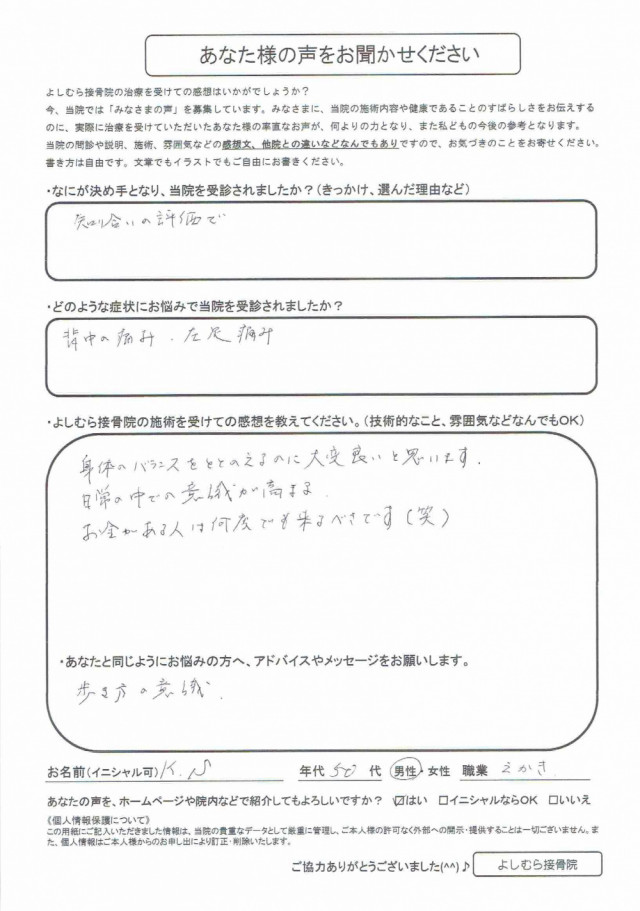 あなた様の声をお聞かせください
よしむら接骨院の治療を受けての感想はいかがでしょうか？
今、当院では「みなさまの声」を募集しています。みなさまに、当院の施術内容や健康であることのすばらしさをお伝えする
のに、実際に治療を受けていただいたあなた様の率直なお声が、何よりの力となり、また私どもの今後の参考となります。
当院の問診や説明、施術、雰囲気などの感想文、他院との違いなどなんでもありですので、お気づきのことをお寄せください。
書き方は自由です。文章でもイラストでもご自由にお書きください。
・なにが決め手となり、当院を受診されましたか？（きっかけ、選んだ理由など）
知り合いの評価で
・どのような症状にお悩みで当院を受診されましたか？
背中の痛み．左足痛み
・よしむら接骨院の施術を受けての感想を教えてください。（技術的なこと、雰囲気などなんでもOK）
身体のバランスをととのえるのに大変良いと思います．
日常の中での意識が高まる．
お金がある人は何度でも来るべきです（笑）
・あなたと同じようにお悩みの方へ、アドバイスやメッセージをお願いします。
歩き方の意識．
お名前（イニシャル可） K. N 年代 50 代 男性・女性 職業 えかき
あなたの声を、ホームページや院内などで紹介してもよろしいですか？ ☑はい □イニシャルならOK □いいえ
《個人情報保護について》
この用紙にご記入いただきました情報は、当院の貴重なデータとして厳重に管理し、ご本人様の許可なく外部への開示・提供することは一切ございません。ま
た、個人情報はご本人様からのお申し出により訂正・削除いたします。
ご協力ありがとうございました(^^)♪ よしむら接骨院